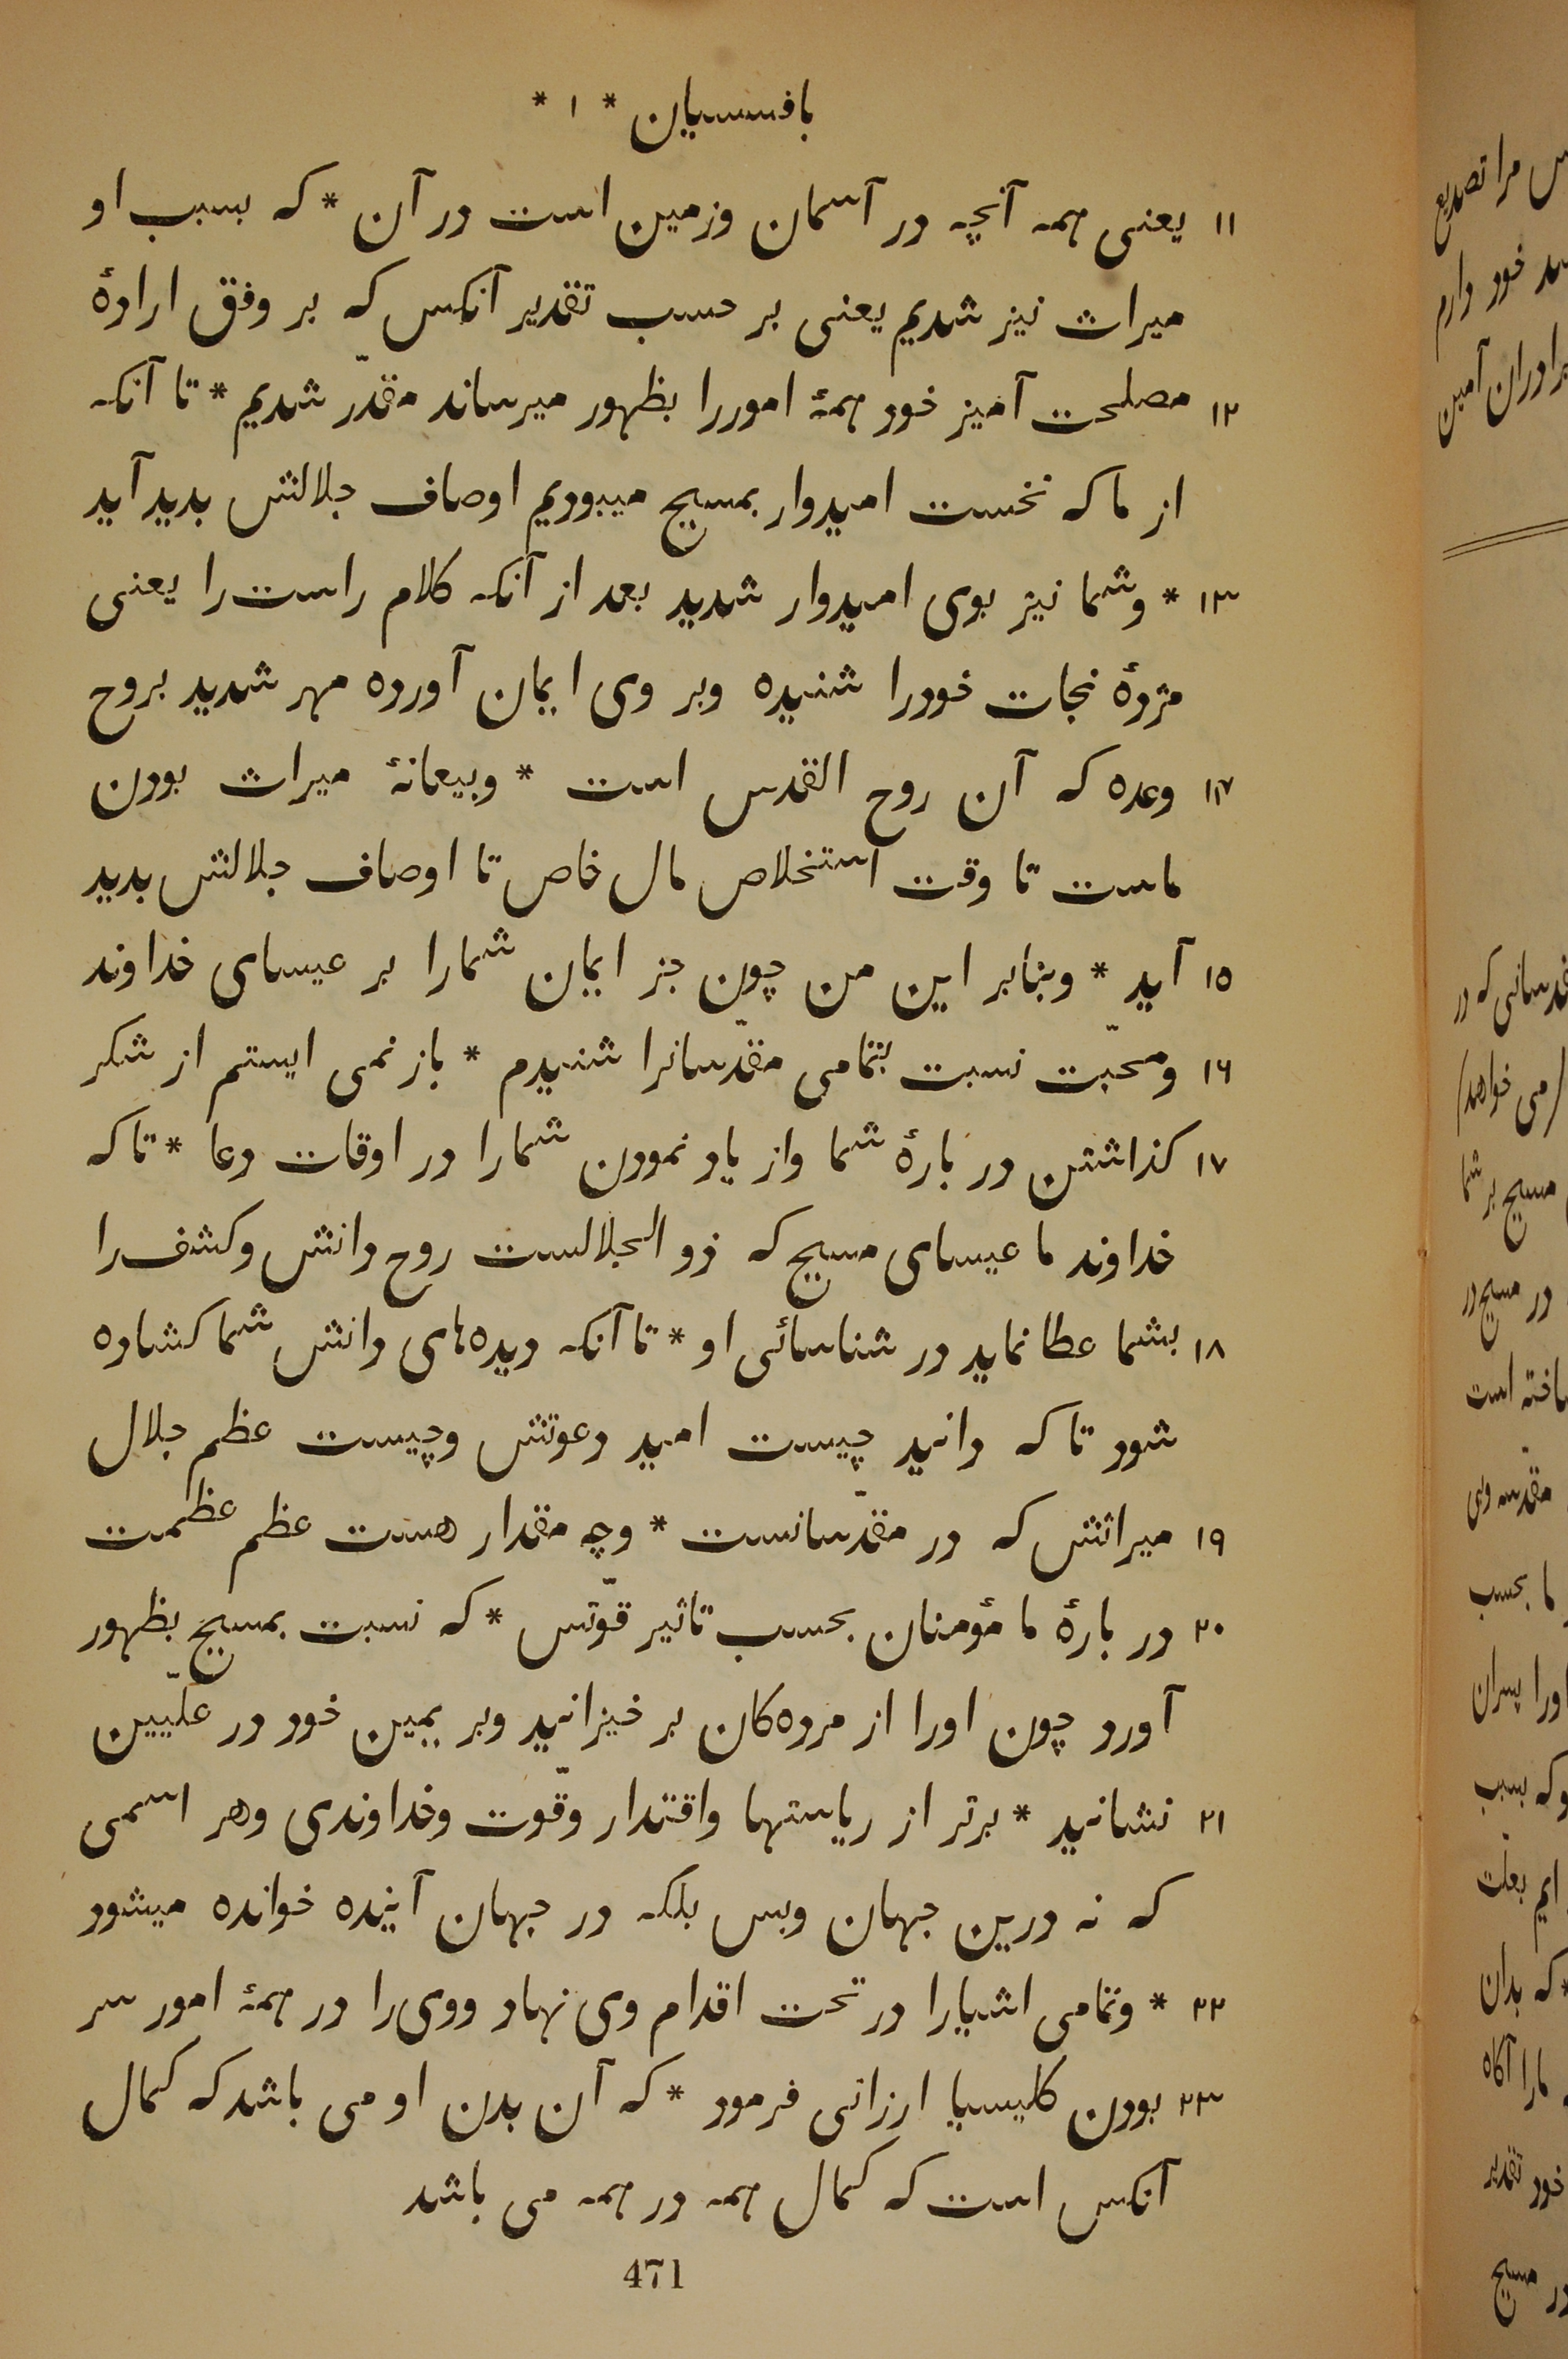 بافسسیان * ۱ *
۱۱ یعنی همه آنچه در آسمان وزمین است در آن * که بسبب او
میراث نیز شدیم یعنی بر حسب تقدیر آنکس که بر وفق ارادهٔ
۱۲ مصلحت آمیز خود همهٔ اموررا بظهور میرساند مقدّر شدیم * تا آنکه
از ما که نخست امیدوار بمسیح میبودیم اوصاف جلالش بدید آید
۱۳ * وشما نیز بوی امیدوار شدید بعد از آنکه کلام راست را یعنی
مژدهٔ نجات خودرا شنیده وبر وی ایمان آورده مهر شدید بروح
۱۴ وعده که آن روح القدس است * وبیعانهٔ میراث بودن
ماست تا وقت استخلاص مال خاص تا اوصاف جلالش بدید
۱۵ آید * وبنابر این من چون جز ایمان شمارا بر عیسای خداوند
۱۶ ومحبّت نسبت بتمامی مقدّسانرا شنیدم * باز نمی ایستم از شکر
۱۷ کذاشتن در بارهٔ شما واز یاد نمودن شمارا در اوقات دعا * تا که
خداوند ما عیسای مسیح که ذو الجلالست روح دانش وکشف را
۱۸ بشما عطا نماید در شناسائی او * تا آنکه دیده‌های دانش شما کشاده
شود تا که دانید چیست امید دعوتش وچیست عظم جلال
۱۹ میراثش که در مقدّسانست * وچه مقدار هست عظم عظمت
۲۰ در بارهٔ ما مؤمنان بحسب تاثیر قوّتس * که نسبت بمسیح بظهور
آورد چون اورا از مرده‌کان بر خیزانید وبر یمین خود در علّیین
۲۱ نشانید * برتر از ریاستها واقتدار وقوّت وخداوندی وهر اسمی
که نه درین جهان وبس بلکه در جهان آینده خوانده میشود
۲۲ * وتمامی اشیارا در تحت اقدام وی نهاد ووی‌را در همهٔ امور سر
۲۳ بودن کلیسیا ارزانی فرمود * که آن بدن او می باشد که کمال
آنکس است که کمال همه در همه می باشد
471